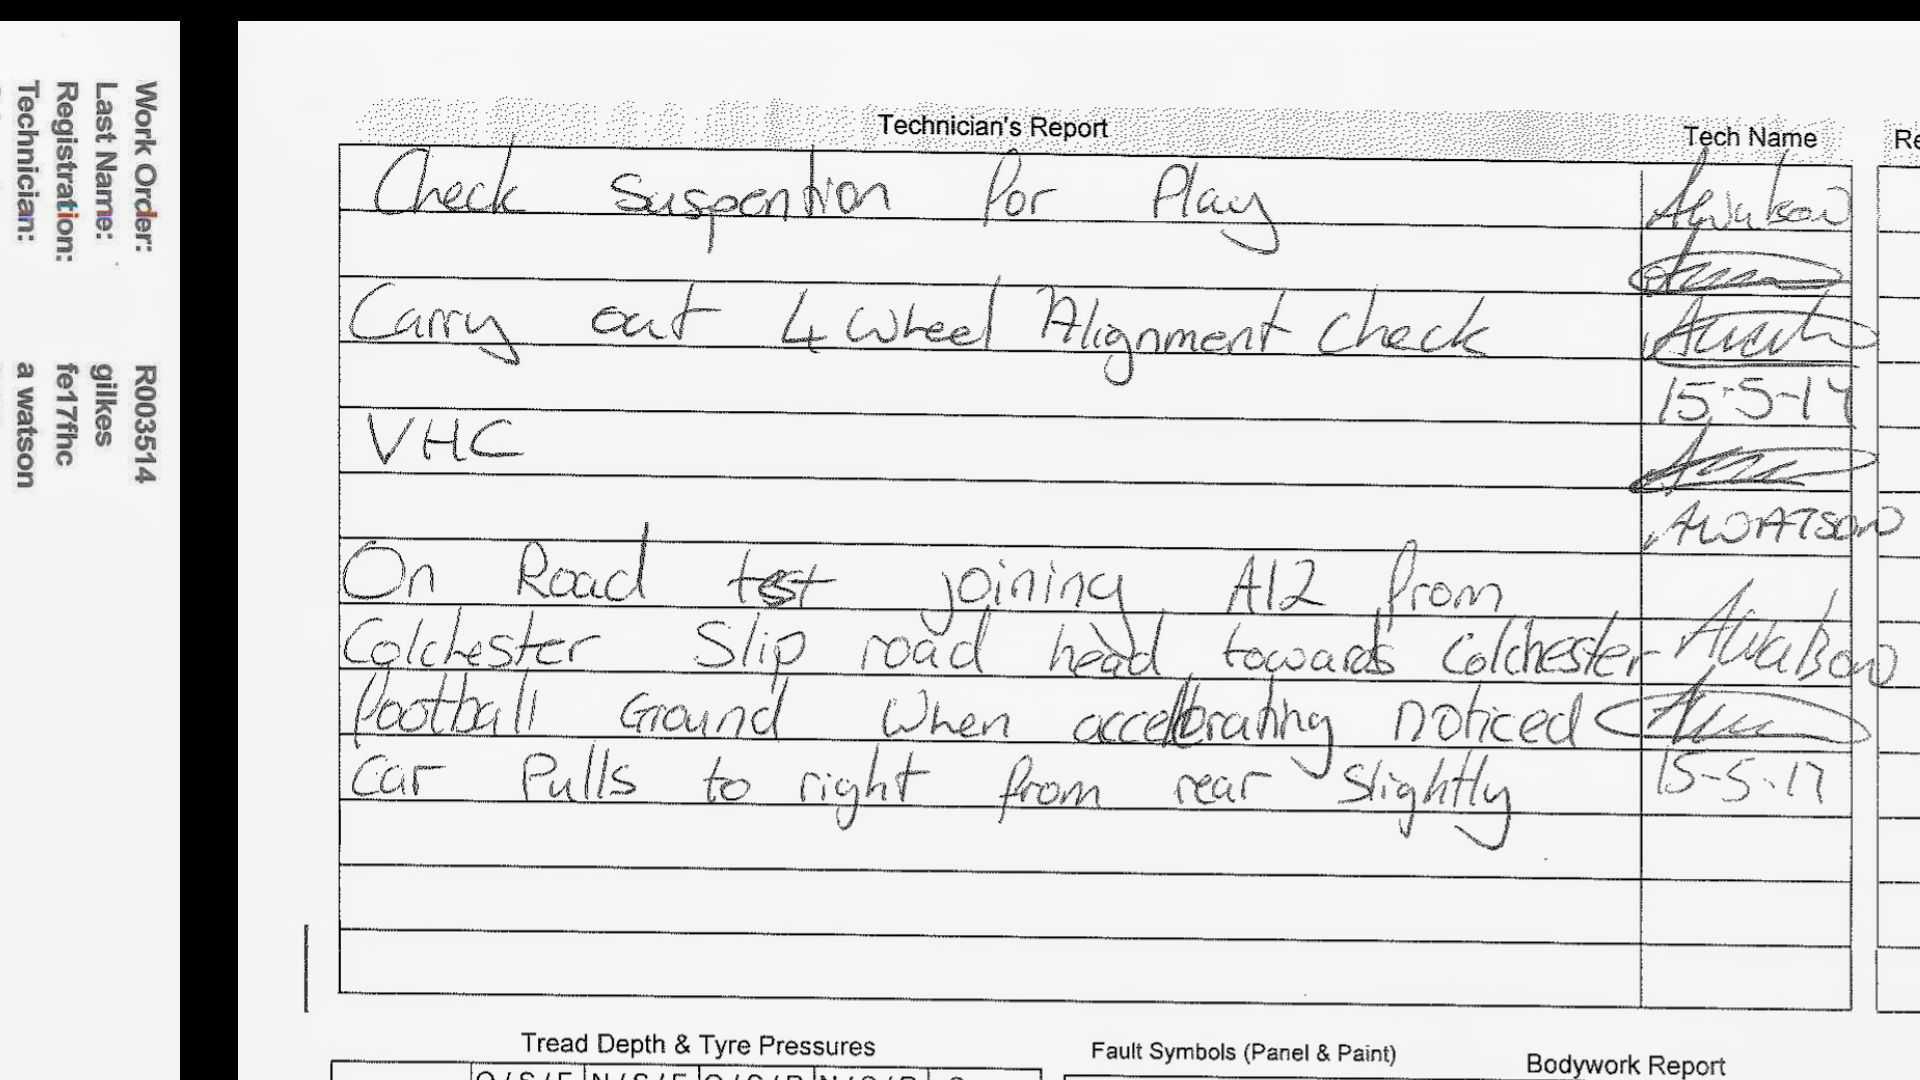 Work Order: R003514
Last Name: gilkes
Registration: fe17fhc
Technician: a watson
Technician's Report
Tech Name
Re
Check Suspention for Play
AWatson
Carry out 4 Wheel Alignment Check
15-5-17
VHC
AWATSON
On Road test joining A12 from
Colchester Slip road head towards Colchester
AWatson
football Ground When accellerating noticed
Car Pulls to right from rear Slightly
15-5-17
Tread Depth & Tyre Pressures
Fault Symbols (Panel & Paint)
Bodywork Report